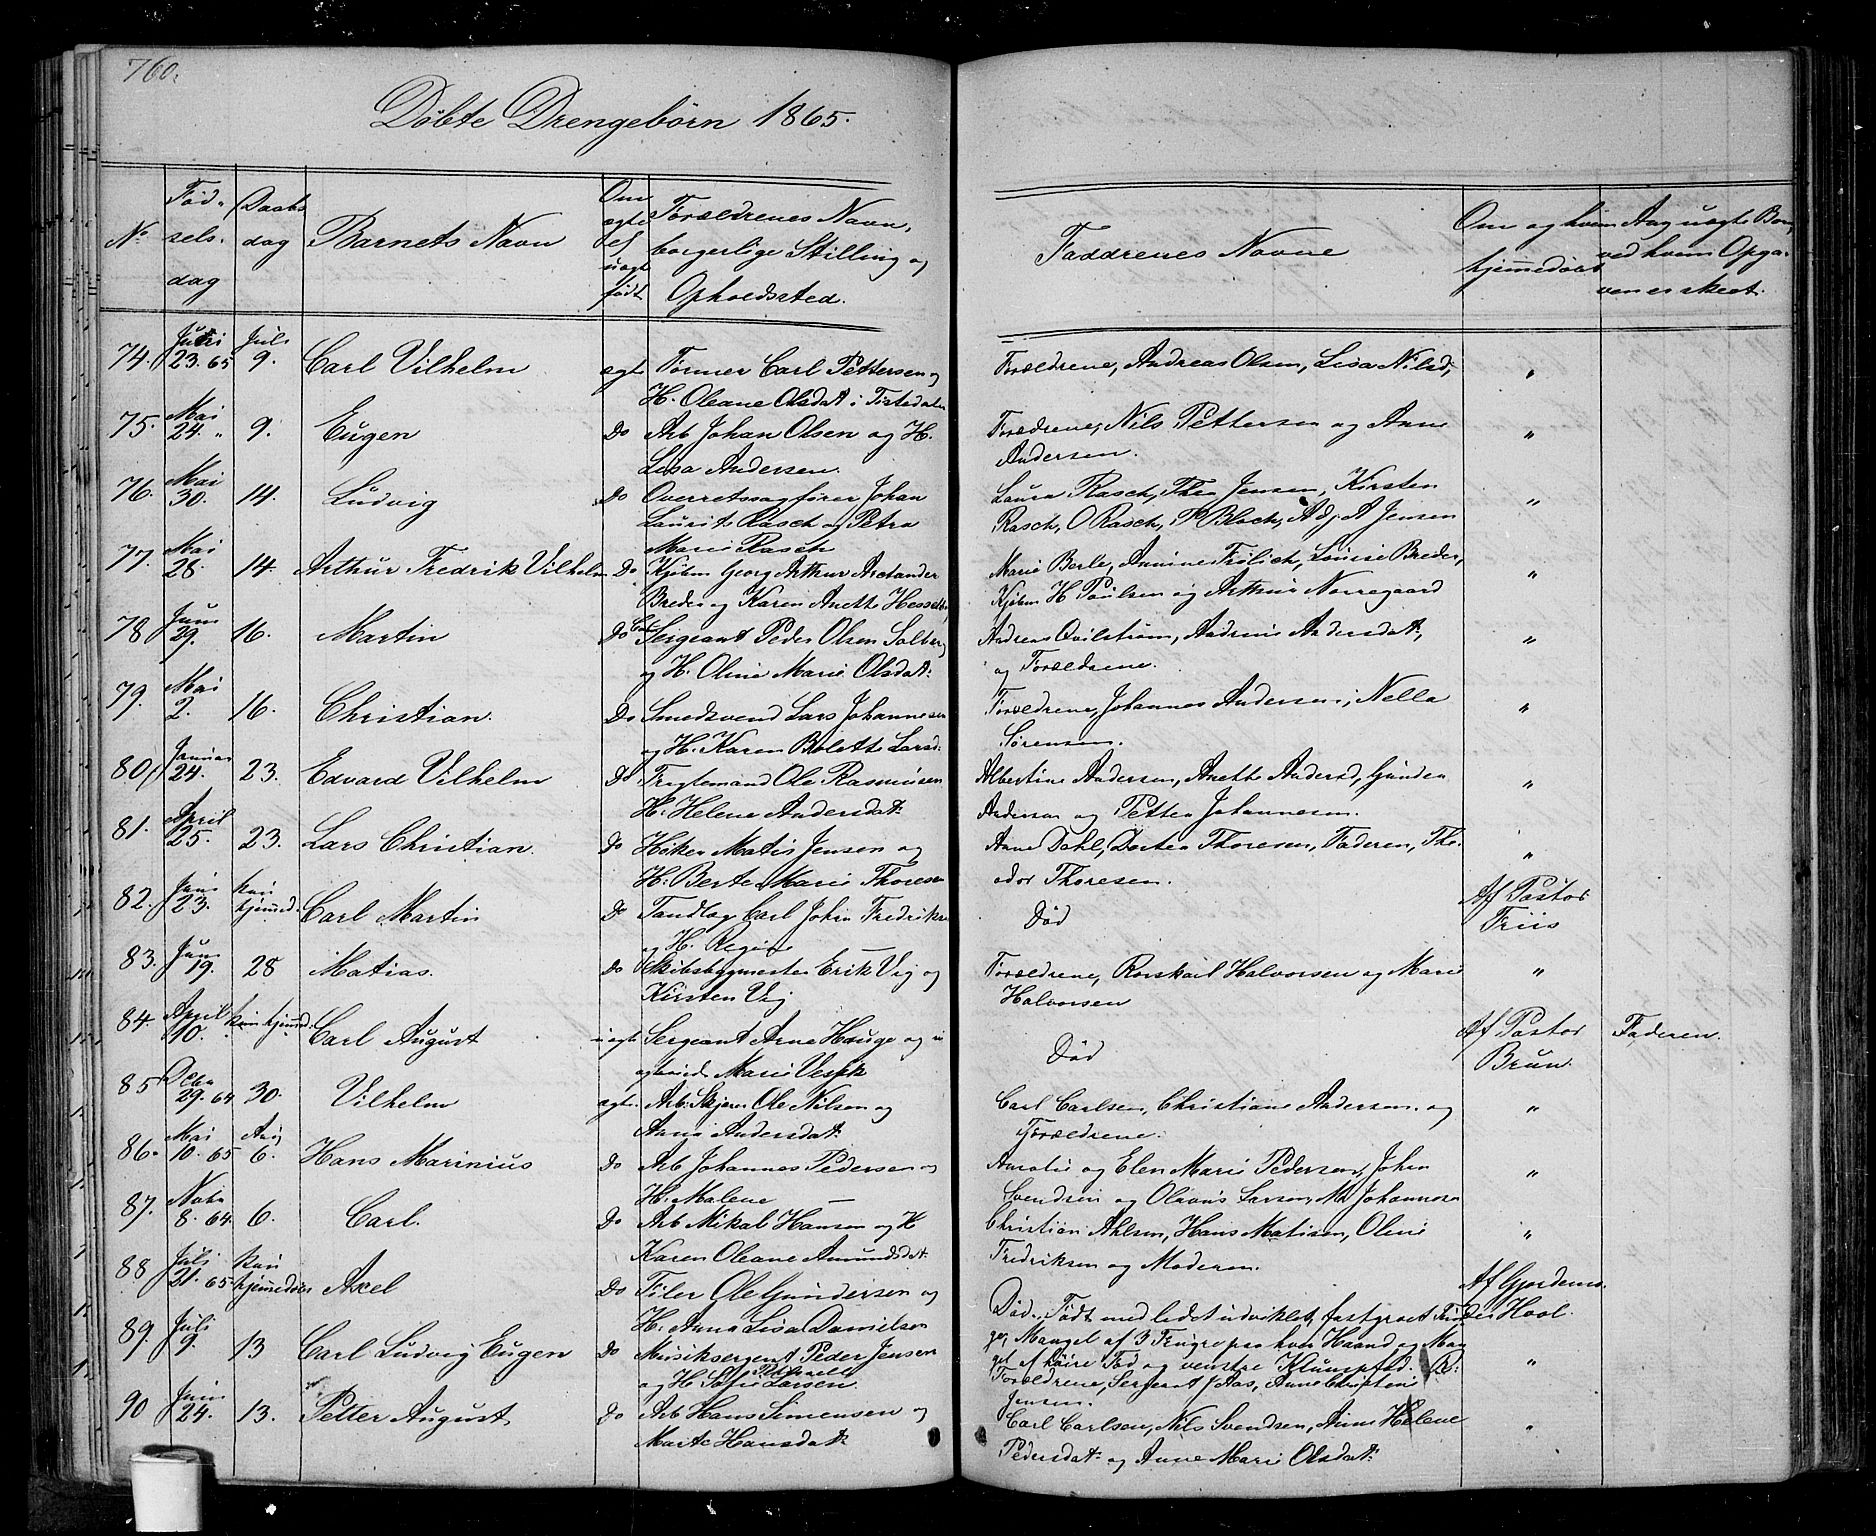 760.
Döbte Drengebörn 1865.
No
Födselsdag
Daabsdag
Barnets Navn
Om ægte el uægt födt
Forældrenes Navn, borgerlige Stilling og Opholdssted.
Faddrenes Navne
Om og hvem hjemmedöbt
Ang uægte Barn, ved hvem Opgaven er skeet.
74. Juni 23. 65 Juli 9. Carl Vilhelm ægt Former Carl Pettersen og Forældrene, Andreas Olsen, Lisa Nilsd, "
H. Oleane Olsdat i Tistedalen
75. Mai 24. " 9. Eugen Do Arb Johan Olsen og H. Forældrene, Nils Pettersen og Anne "
Lisa Andersen. Andersen.
76. Mai 30. 14. Ludvig Do Overretssagförer Johan Laura Rasch, Thea Jensen, Kirsten "
Laurits Rasch og Petra Rasch, O Rasch, P Bloch, Adj. A Jensen
Marie Rasch
77. Mai 28. 14. Arthur Fredrik Vilhelm Do Kjöbm Georg Arthur Arctander Marie Berle, Annine Frölich, Louise Breder, "
Breder og Karen Anette Hesselb, Kjöbm H Paulsen og Arthur Norregaard
78 Juni 29. 16. Martin Do Sergeant Peder Olsen Solberg Andreas Qvilström, Andrine Andersdat, "
og H. Oline Marie Olsdat: og Forældrene.
79. Mai 2. 16. Christian. Do Smedsvend Lars Johannesen Forældrene, Johannes Andersen, Nella "
og H. Karen Bolette Larsd. Sörensen.
80 Januar 24. 23. Edvard Vilhelm Do Fragtemand Ole Rasmusen Albertine Andersen, Anette Andersd, Gunder "
H. Helene Andersdat: Andersen og Petter Johannesen.
81. April 25. 23. Lars Christian. Do Höker Matis Jensen og Anne Dahl, Dortea Thoresen, Faderen, Theo- "
H. Berte Marie Thoresen odor Thoresen.
82. Juni 23. kun hjemmed. Carl Martin Do Tandlæg Carl John Fredriksen Död Af Pastor
og H. Regine — Friis
83. Juni 19. 28 Matias. Do Skibsbygmester Erik Vig og Forældrene, Rorskarl Halvorsen og Marie "
Kirsten Vig Halvorsen
84. April 10. kun hjemmd: Carl August uægt Sergeant Arne Hauge og Död Af Pastor Faderen.
Marie Brun.
85 Decbr 29. 64 30. Vilhelm ægte. Arb: Skjerer Ole Nilsen og Carl Carlsen, Christiane Andersen. og "
Andersdat: Forældrene.
86. Mai 10. 65 Aug 6. Hans Marinius Do Arb Johannes Pedersen og Amalie og Elen Marie Pedersen, Johan "
H. Malene — Svendsen og Olavus Larsen, M. Johannesen
87. Novbr 8. 64. 6. Carl. Do Arb Mikal Hansen og H Christian Ahlsen, Hans Matisen, Oline "
Karen Oleane Amundsdat: Fredriksen og Moderen.
88 Juli 21. 65 kun hjemmedöbt Axel Do Filer Ole Gundersen og Död. Födt med lidet udviklet, fastgroet Tun- Af Gjordemo-
H. Anna Lisa Danielsen ge, Mangel af 3 Fingre paa hver Haand og Man- der Hool.
get af höire Fod og venstre Klumpfod.
89. Juli 9. 13 Carl Ludvig Eugen Do Musiksergent Peder Jensen Forældrene, Sergeant J Aas, Anne Christine "
og H Sofie Petronelle Larsen. Jensen.
90 Juni 24. 13. Petter August Do Arb Hans Simensen og Carl Carlsen, Nils Svendsen, Anne Helene "
Marte Hansdat: Pedersdat: og Anne Marie Olsdat: